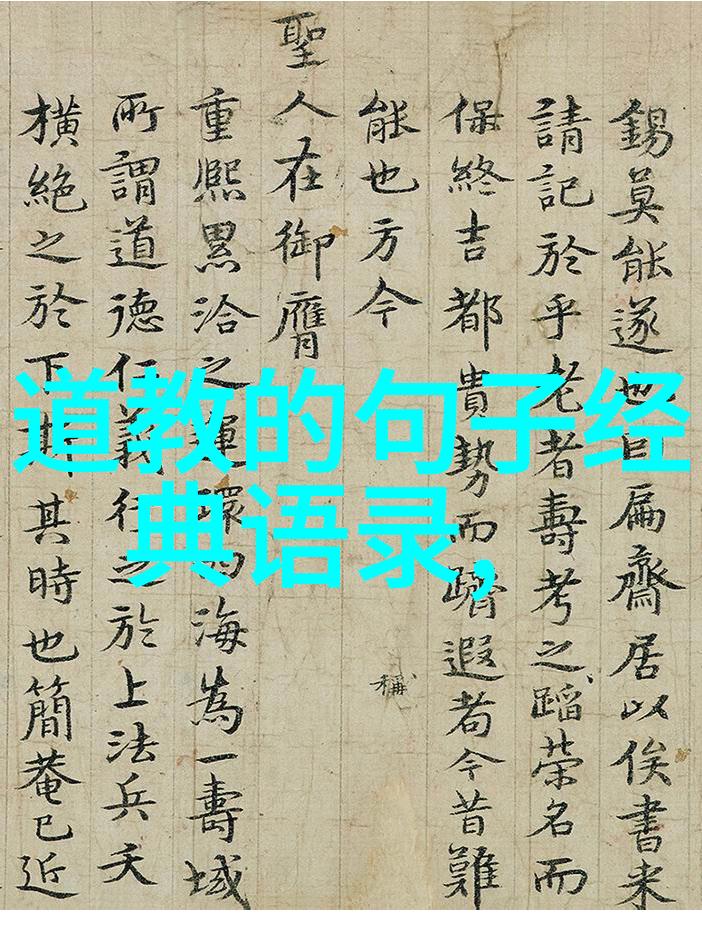 錫莫能遂也曰扁齋居以俟書来
請記於乎老者壽考之蹈榮名而
保終吉都貴勢而躋遐耇今昔難
能也方今
稱
聖人在御膺
重熙累洽之運環海為一壽域
所謂道德仁義行之於上法兵夭
橫絕之於下斯其時也簡菴已近
道教的句子经
典语录,